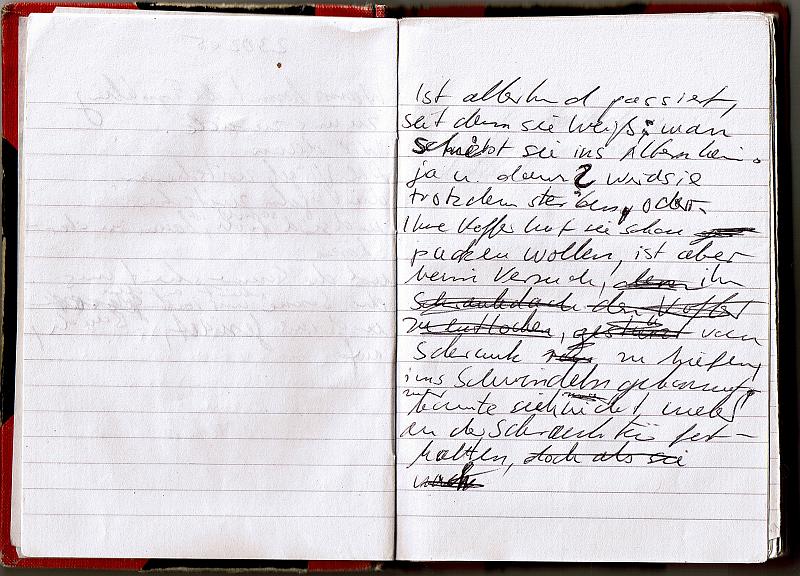 Ist allerhand passiert,
seit dem sie weiß: man
schiebt sie ins Altersheim.
ja u. dann? wird sie
trotzdem sterben, oder.
Ihre Koffer hat sie schon
packen wollen, ist aber
beim Versuch, ihn
Schrankdach den Koffer
zu entlocken, vom
Schrank zu hiefen,
ins Schwindeln gekommen,
konnte sich nicht mehr
an der Schranktür fest-
halten, doch als sie